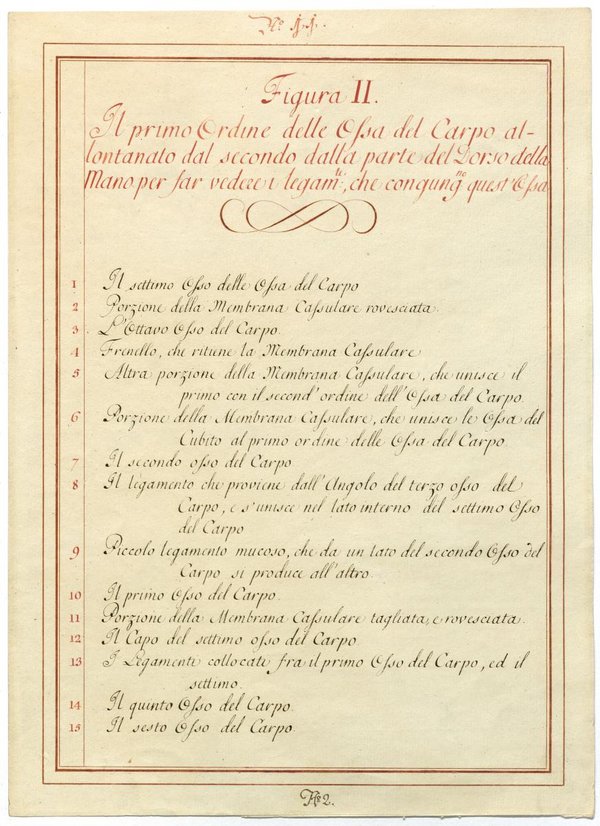 Figura II.
Il primo Ordine delle Ossa del Carpo al-
lontanato dal secondo dalla parte del Dorso della
Mano per far vedere i legam.ti, che congung.no quest'Ossa
1 Il settimo Osso delle Ossa del Carpo
2 Porzione della Membrana Cassulare rovesciata.
3 L'Ottavo Osso del Carpo.
4 Frenello, che ritiene la Membrana Cassulare
5 Altra porzione della Membrana Cassulare, che unisce il
primo con il second'ordine dell'Ossa del Carpo.
6 Porzione della Membrana Cassulare, che unisce le Ossa del
Cubito al primo ordine delle Ossa del Carpo.
7 Il secondo osso del Carpo
8 Il legamento che proviene dall'Angolo del terzo osso del
Carpo, e s'unisce nel lato interno del settimo Osso
del Carpo
9 Piccolo legamento mucoso, che da un lato del secondo Osso del
Carpo si produce all'altro.
10 Il primo Osso del Carpo.
11 Porzione della Membrana Cassulare tagliata, e rovesciata.
12 Il Capo del settimo osso del Carpo
13 I Legamenti collocati fra il primo Osso del Carpo, ed il
settimo.
14 Il quinto Osso del Carpo.
15 Il sesto Osso del Carpo.
No 2.